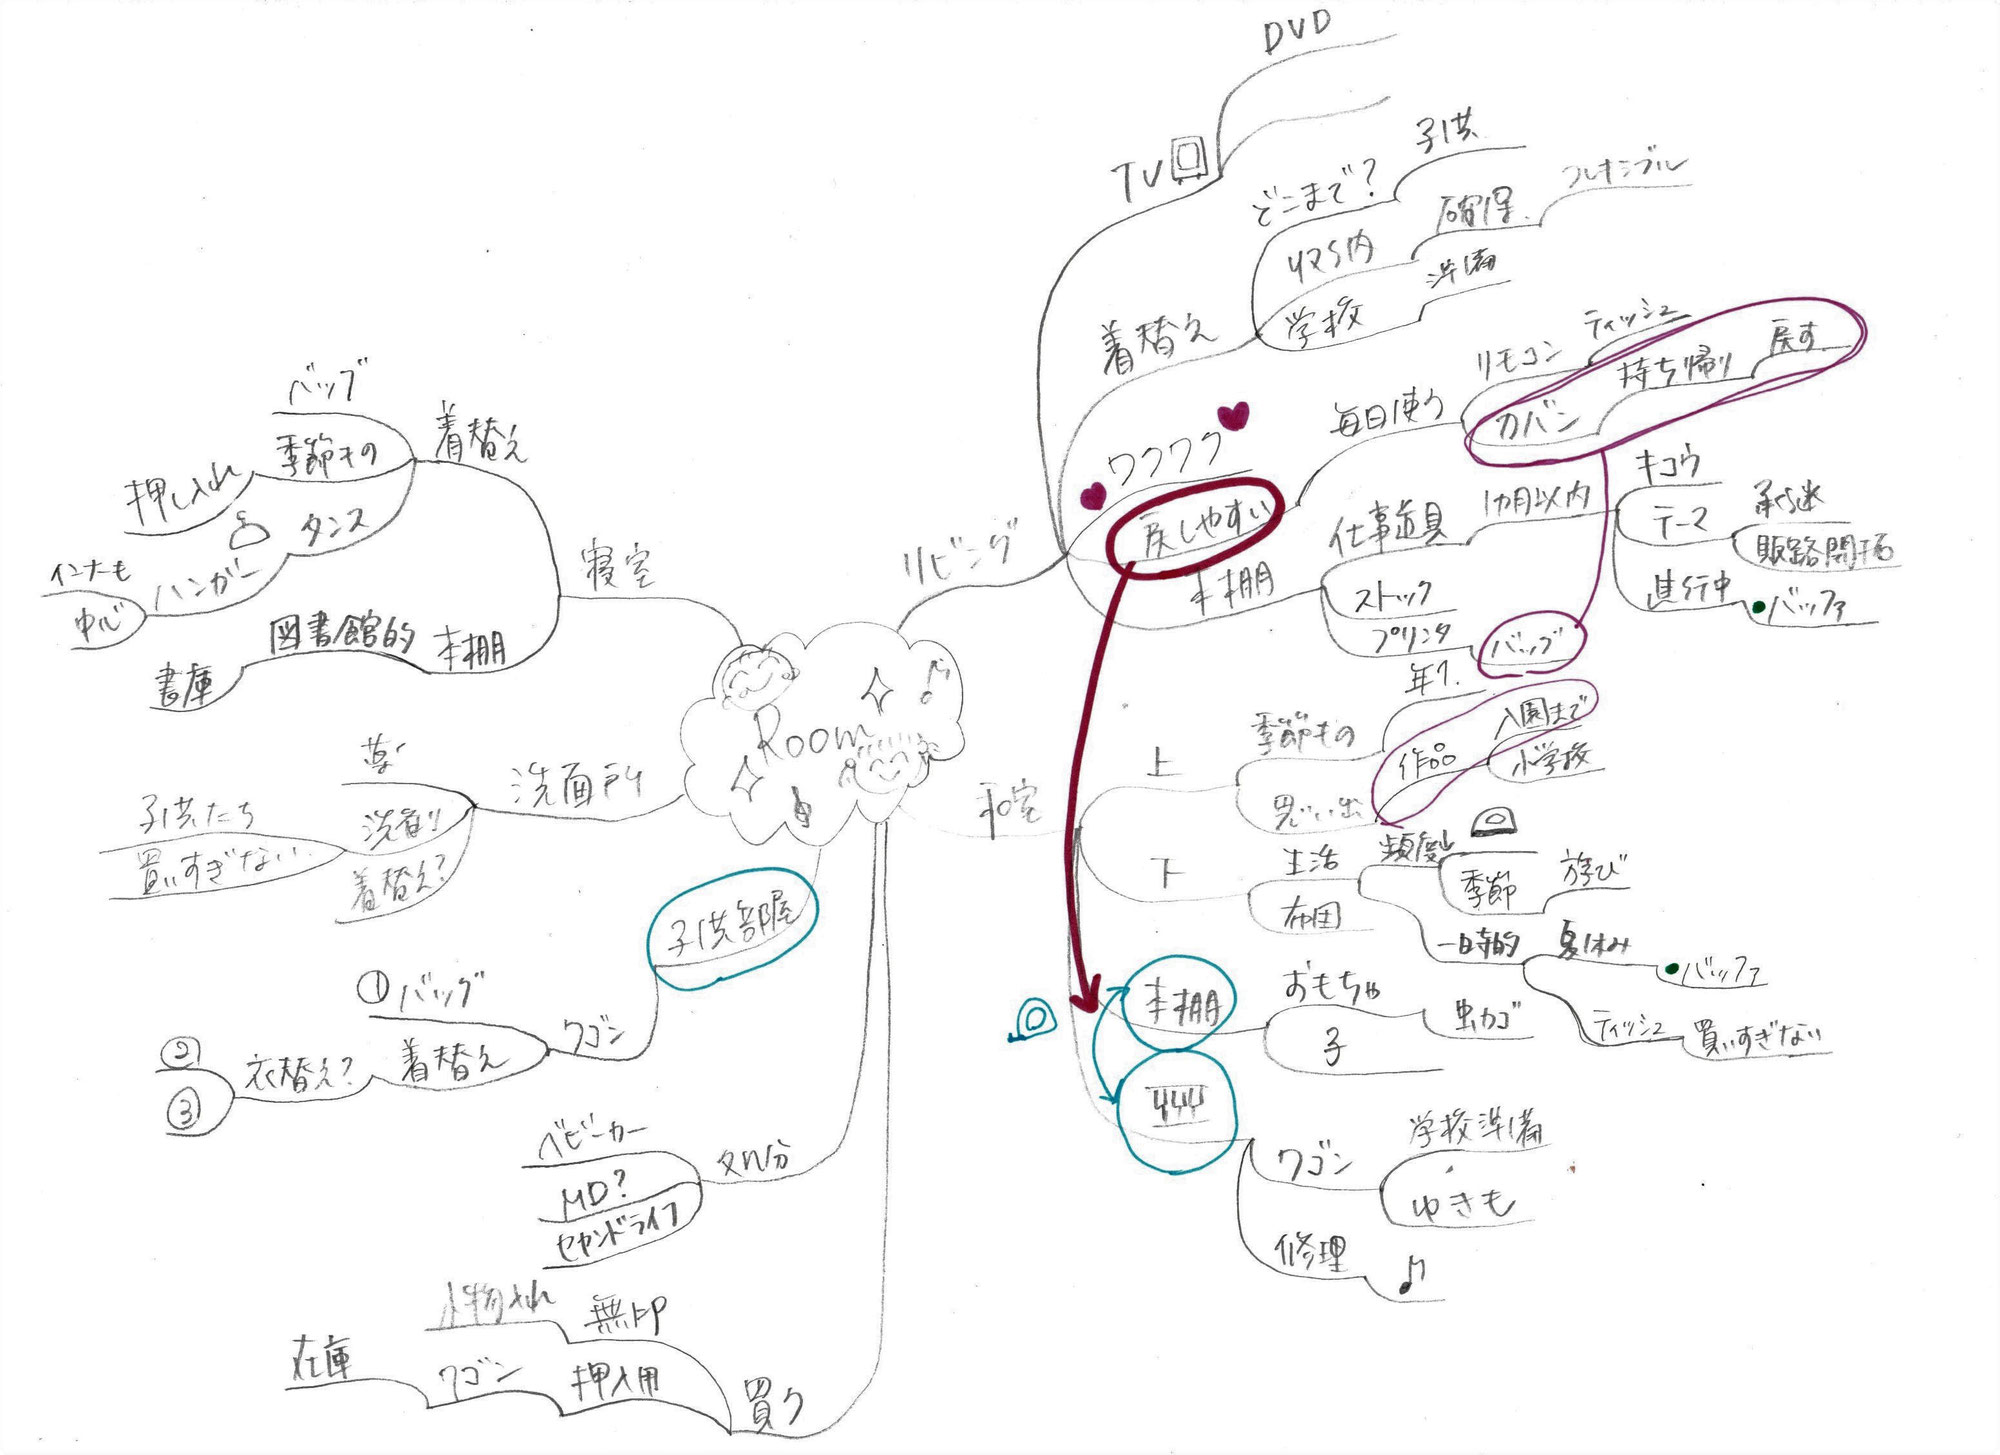 Room
リビング
TV
DVD
着替え
どこまで?
子供
収納
確保
フレキシブル
学校
準備
ワクワク
戻しやすい
毎日使う
リモコン
ティッシュ
カバン
持ち帰り
戻す
本棚
仕事道具
1ヵ月以内
キコウ
テーマ
承継
販路開拓
進行中
バッファ
ストック
プリンタ
バッグ
和室
上
季節もの
年1
思い出
作品
入園まで
小学校
下
生活
布団
頻度
季節
遊び
一時的
夏休み
バッファ
ティッシュ
買いすぎない
本棚
おもちゃ
虫カゴ
子
ワゴン
学校準備
ゆきも
修理
寝室
着替え
バッグ
季節もの
押し入れ
タンス
ハンガー
インナーも
中心
本棚
図書館的
書庫
洗面所
薬
洗剤
子供たち
買いすぎない
着替え?
子供部屋
ワゴン
①バッグ
着替え
衣替え?
②
③
処分
ベビーカー
MD?
セカンドライフ
買う
無印
小物入れ
押入用
ワゴン
在庫